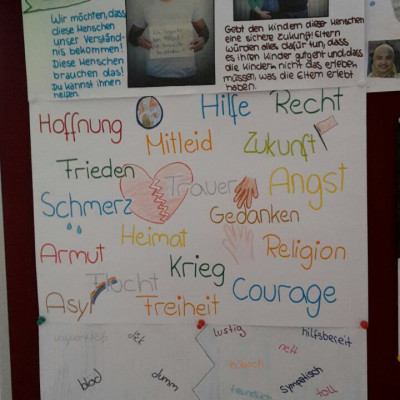 Wir möchten, dass
diese Menschen
unser Verständ-
nis bekommen!
Diese Menschen
brauchen das!
Du kannst ihnen
helfen.
Gebt den Kindern dieser Menschen
eine sichere Zukunft! Eltern
würden alles dafür tun, dass
es ihren Kinder gut geht und, dass
die Kindern nicht das erleben
müssen, was die Eltern erlebt
haben.
Hilfe Recht
Hoffnung
Mitleid Zukunft
Frieden
Trauer Angst
Schmerz Gedanken
Heimat
Armut Religion
Krieg
Flucht
Asyl Freiheit Courage
lustig hilfsbereit
nett
hübsch
blöd dumm sympatisch
toll